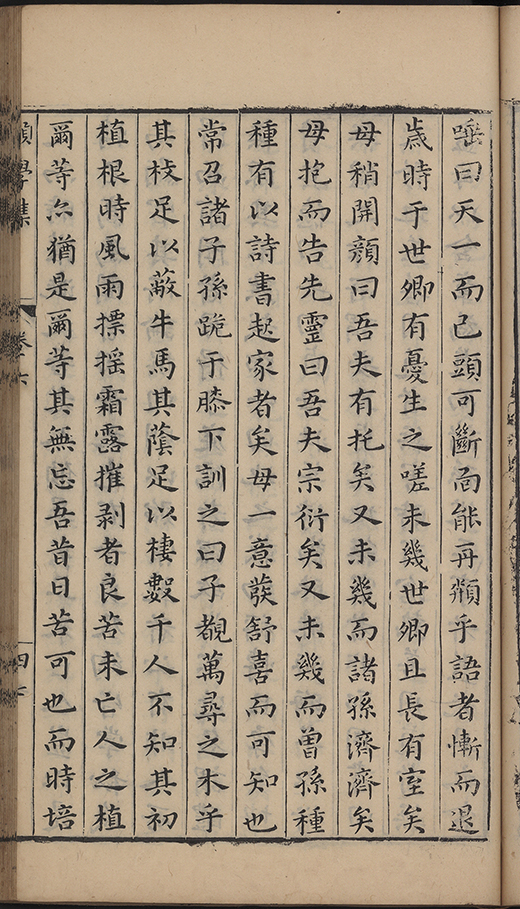 唾曰天一而已頭可斷而能再乎語者慚而退
歲時于世卿有憂生之嗟未幾世卿且長有室矣
母稍開顏曰吾夫有托矣又未幾而諸孫濟濟矣
母抱而告先靈曰吾夫宗衍矣又未幾而曾孫種
種有以詩書起家者矣母一意發舒喜而可知也
常召諸子孫跪于膝下訓之曰子覩萬尋之木乎
其枝足以蔽牛馬其蔭足以棲數千人不知其初
植根時風雨摽搖霜露摧剝者良苦未亡人之植
爾等尒猶是爾等其無忘吾昔日苦可也而時培
學集
卷六